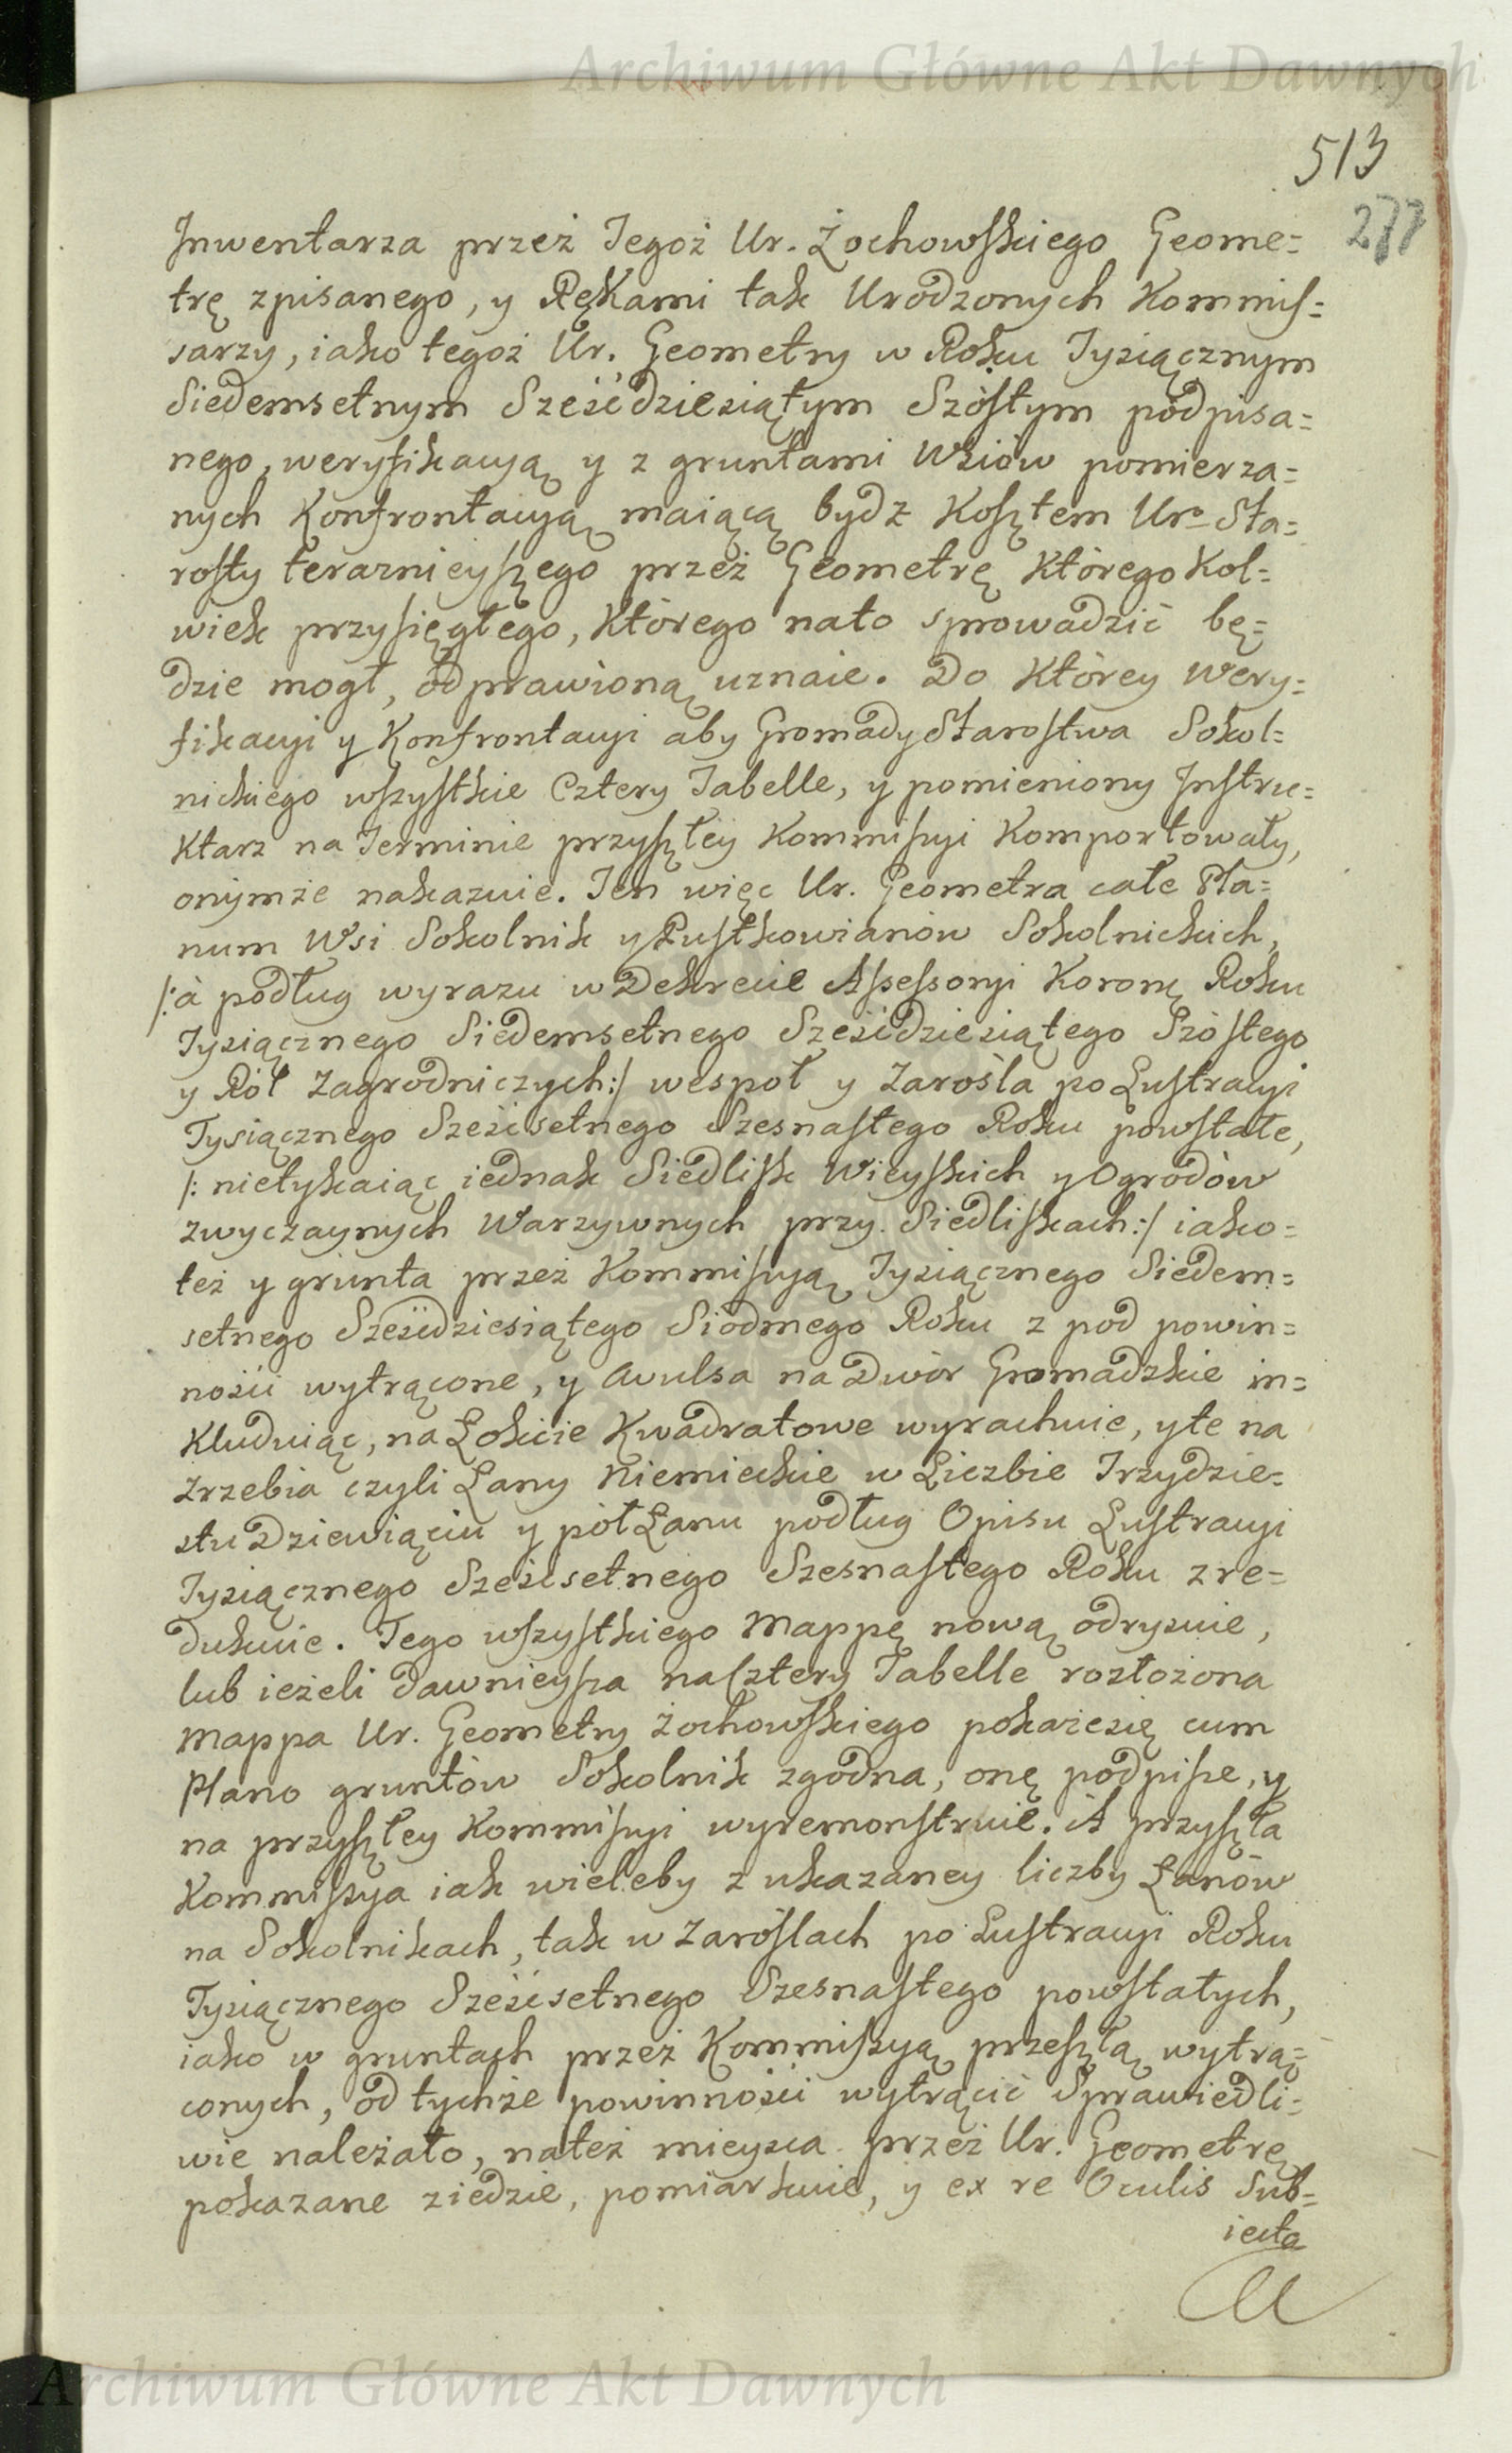 Archiwum Główne Akt Dawnych
513
277
Inwentarza przez Tegoż Ur. Żochowskiego Geome=
trę zpisanego, y Rękami tak Urodzonych Kommis=
sarzy, iako tegoż Ur. Geometry w Roku Tysiącznym
Siedemsetnym Sześćdziesiątym Szóstym podpisa=
nego, weryfikacyą y z gruntami Wsiów pomierza=
nych Konfrontacyą maiącą bydz Kosztem Uro Sta=
rosty teraznieyszego przez Geometrę któregokol=
wiek przysięgłego, którego nato sprowadzić bę=
dzie mogł, odprawioną uznaie. Do którey Wery=
fikacyi y Konfrontacyi aby Gromady Starostwa Sokol=
nickiego wszystkie Cztery Tabelle, y pomieniony Instru=
ktarz na Terminie przyszłey Kommissyi Komportowały,
onymże nakazuie. Ten więc Ur. Geometra całe Pla=
num Wsi Sokolnik y Pustkowianów Sokolnickich,
/:à podług wyrazu w Dekrecie Assessoryi Koronę Roku
Tysiącznego Siedemsetnego Sześćdziesiątego Szóstego
y Ról Zagrodniczych:/ wespoł y Zarośla po Lustracyi
Tysiącznego Sześćsetnego Szesnastego Roku powstałe,
/: nietykaiąc iednak Siedlisk Wieyskich y Ogrodów
zwyczaynych Warzywnych przy Siedliskach:/ iako=
też y grunta przez Kommissyą Tysiącznego Siedem=
setnego Sześćdziesiątego Siodmego Roku z pod powin=
ności wytrącone, y Avulsa na Dwór Gromadzkie in=
kluduiąc, na Łokcie Kwadratowe wyrachuie, y te na
Zrzebia czyli Łany Niemieckie w Liczbie Trzydzie=
stu Dziewiąciu y pół Łanu podług Opisu Lustracyi
Tysiącznego Sześćsetnego Szesnastego Roku zre=
dukuie. Tego wszystkiego Mappę nową odrysuie,
lub ieżeli dawnieysza na Cztery Tabelle rozłożona
Mappa Ur. Geometry Żochowskiego pokażesię cum
Plano gruntów Sokolnik zgodna, onę podpisze, y
na przyszłey Kommissyi wyremonstruie. A przyszła
Kommissya iak wieleby z ukazaney liczby Łanów
na Sokolnikach, tak w Zaroślach po Lustracyi Roku
Tysiącznego Sześćsetnego Szesnastego powstałych,
iako w gruntach przez Kommissyą przeszłą wytrą=
conych, od tychże powinności wytrącić Sprawiedli=
wie należało, nateż mieysca przez Ur. Geometrę
pokazane ziedzie, pomiarkuie, y ex re Oculis Sub=
iecta
Archiwum Główne Akt Dawnych